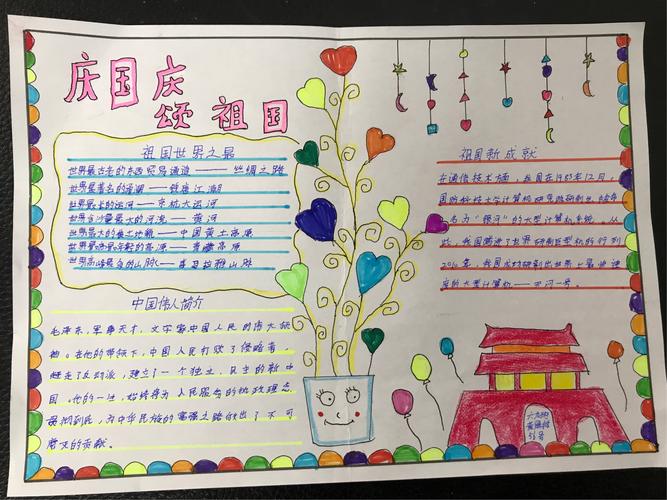 庆国庆
颂祖国
祖国世界之最
世界最古老的东西贸易通道——丝绸之路
世界最著名的涌潮——钱塘江潮
世界最长的运河——京杭大运河
世界含沙量最大的河流——黄河
世界最大的黄土地貌——中国黄土高原
世界最高最年轻的高原——青藏高原
世界高峰最多的山脉——喜马拉雅山脉
中国伟人简介
毛泽东,军事天才,文学家中国人民的伟大领
袖。在他的带领下,中国人民打败了侵略者,
赶走了反动派,建立了一个独立,民主的新中
国。他的一生,始终将为人民服务的执政理念
贯彻到底,为中华民族的富强之路做出了不可
磨灭的贡献。
祖国新成就
在通信技术方面,我国在1983年12月,
国防科技大学计算机研究所研制
名为"银河"的大型计算机系统,从
此,我国跨进了世界研制巨型机的行列
2010年,我国成功研制出世界上最快速
度的大型计算机——天河一号。